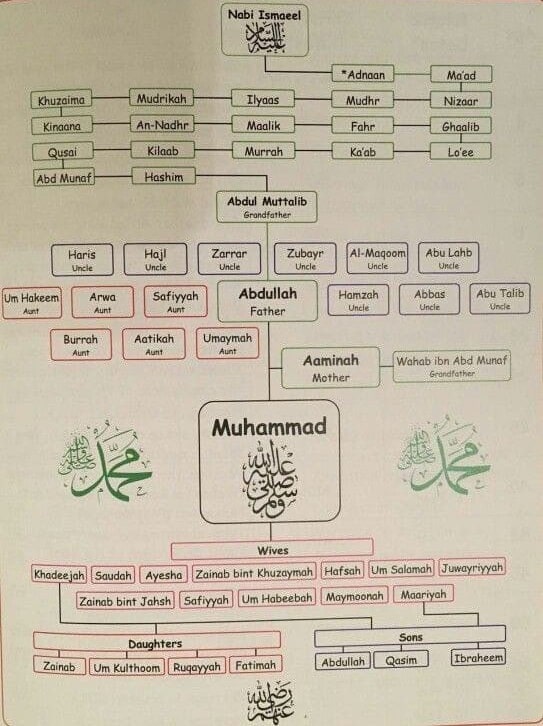 Nabi Ismaeel
عليه السلام
*Adnaan Ma'ad
Khuzaima Mudrikah Ilyaas Mudhr Nizaar
Kinaana An-Nadhr Maalik Fahr Ghaalib
Qusai Kilaab Murrah Ka'ab Lo'ee
Abd Munaf Hashim
Abdul Muttalib
Grandfather
Haris Hajl Zarrar Zubayr Al-Maqoom Abu Lahb
Uncle Uncle Uncle Uncle Uncle Uncle
Um Hakeem Arwa Safiyyah Abdullah Hamzah Abbas Abu Talib
Aunt Aunt Aunt Father Uncle Uncle Uncle
Burrah Aatikah Umaymah
Aunt Aunt Aunt
Aaminah Wahab ibn Abd Munaf
Mother Grandfather
Muhammad
صلى الله عليه وسلم
محمد صلى الله عليه وسلم
محمد صلى الله عليه وسلم
Wives
Khadeejah Saudah Ayesha Zainab bint Khuzaymah Hafsah Um Salamah Juwayriyyah
Zainab bint Jahsh Safiyyah Um Habeebah Maymoonah Maariyah
Daughters Sons
Zainab Um Kulthoom Ruqayyah Fatimah Abdullah Qasim Ibraheem
رضي الله عنهم